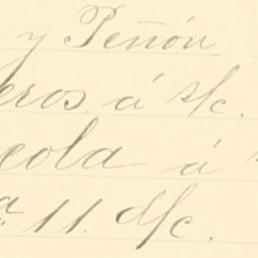 y Peñón
eros á s/c.
cola á
a 11. d/c.